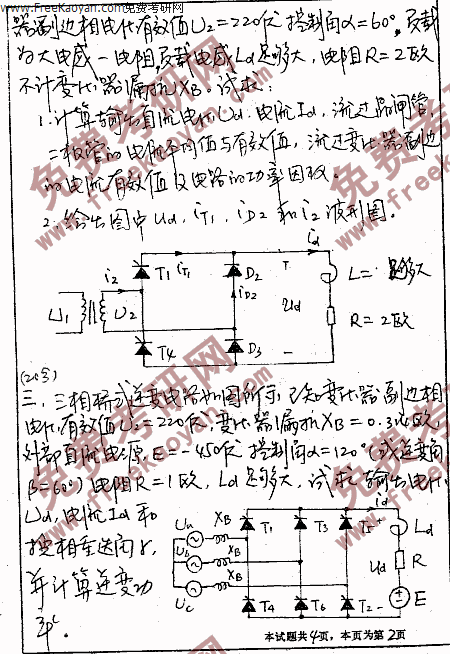 www.FreeKaoyan.com免费考研网
器副边相电压有效值U2=220伏 控制角α=60°，负载
为大电感－电阻，负载电感Ld足够大，电阻R=2欧
不计变压器漏抗XB。试求：
1.计算输出直流电压Ud，电流Id，流过晶闸管，
二极管的电流平均值与有效值，流过变压器副边
的电流有效值及电路的功率因数。
2.绘出图中ud，iT1，iD2和i2波形图。
id
i2 T1 iT1 D2 L=足够大
U1 U2 iD2 Ud
R=2欧
T4 D3
(20分)
三、三相桥式逆变电路如图所示，已知变压器副边相
电压有效值U2=220伏，变压器漏抗XB=0.3欧，
外部直流电源E=-450伏 控制角α=120°(或逆变角
β=60°) 电阻R=1欧，Ld足够大，试求输出电压
Ud，电流Id和
换相重迭角γ，
并计算逆变功
率。
id
Ua XB T1 T3 T5 Ld
Ub XB Ud R
Uc XB T4 T6 T2 E
本试题共4页，本页为第2页